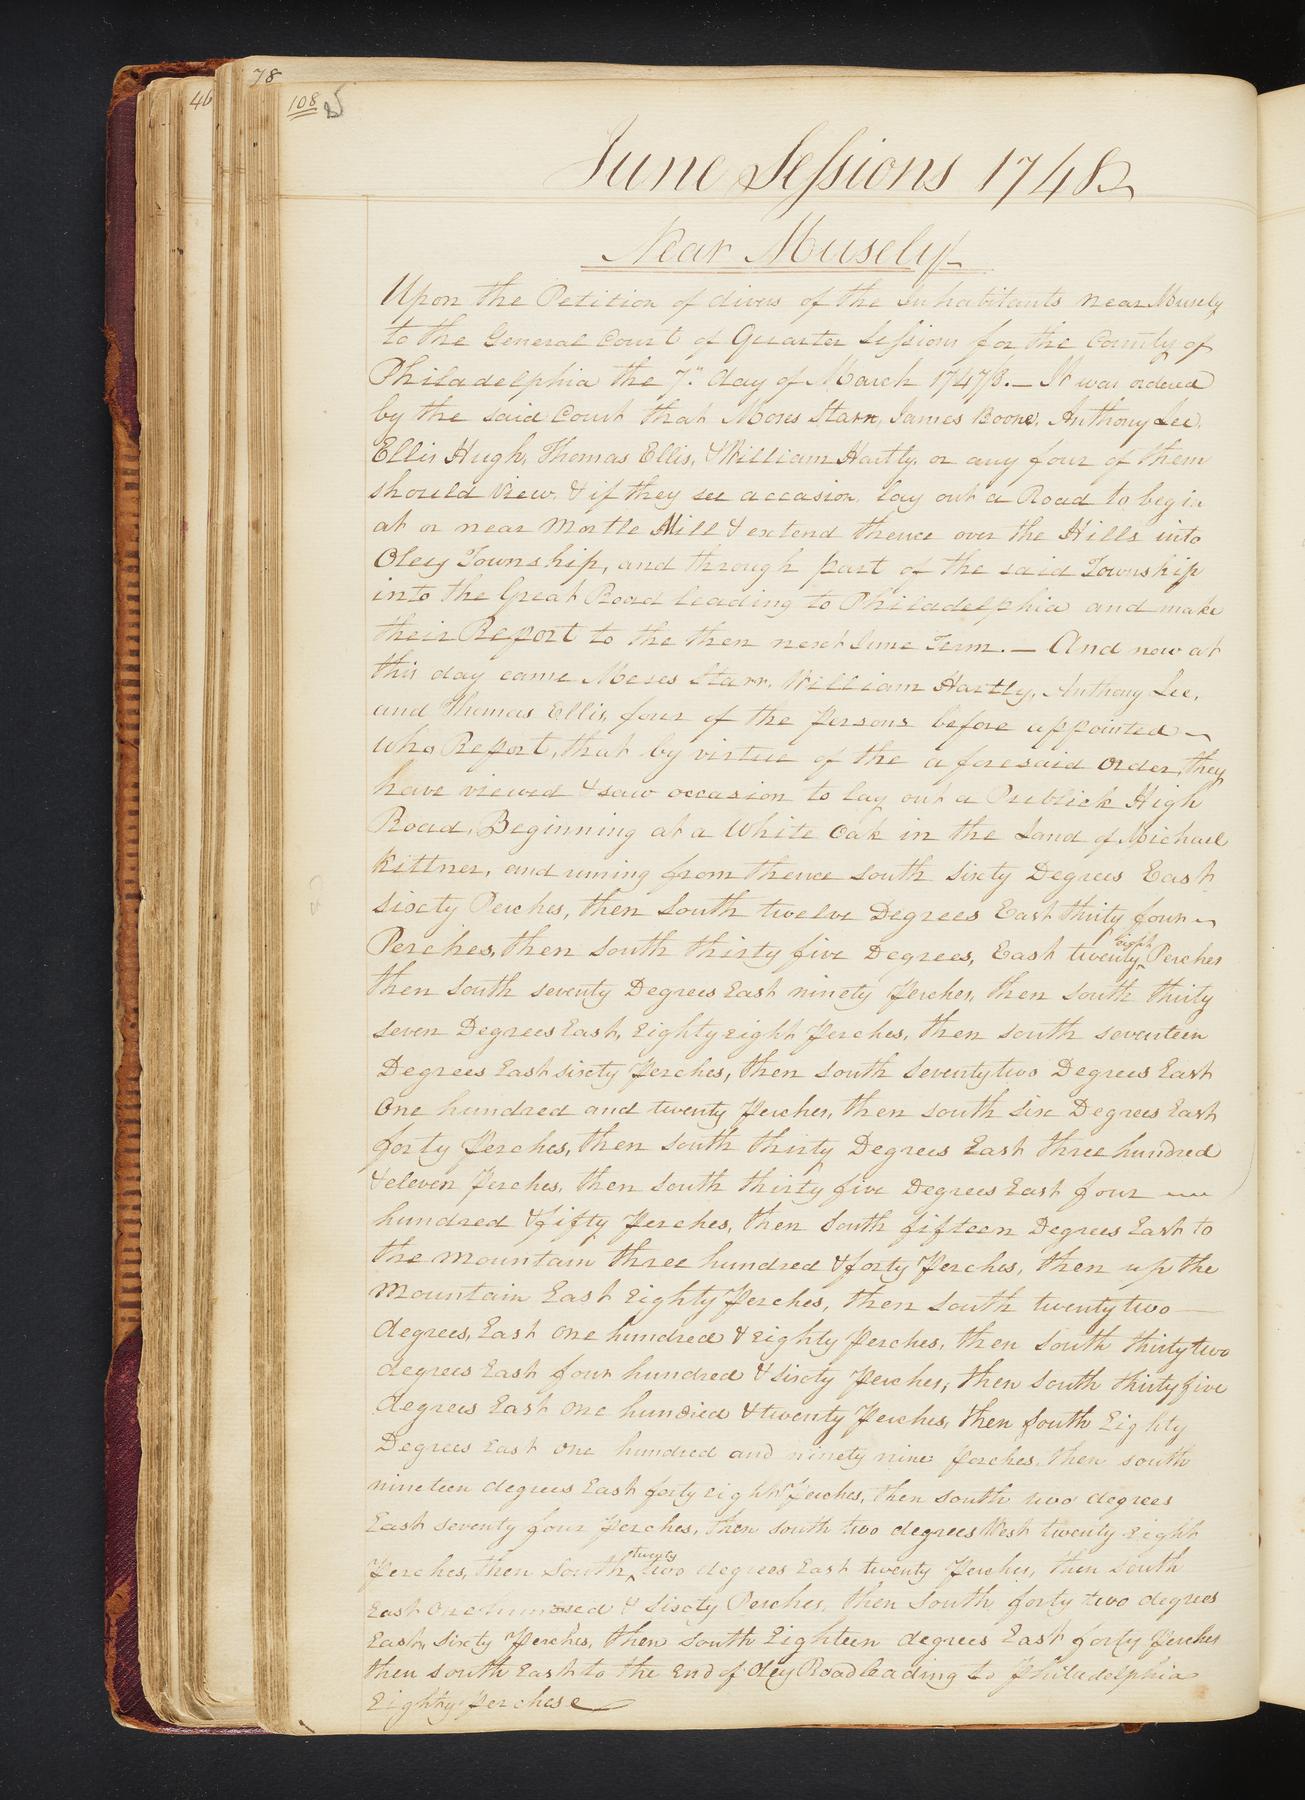 78
46
108
June Sessions 1748
Near Musely
Upon the Petition of divers of the Inhabitants near Musely
to the General Court of Quarter Sessions for the County of
Philadelphia the 7." day of March 1747/8.— It was ordered
by the said Court that Moses Starr, James Boone, Anthony Lee,
Ellis Hugh, Thomas Ellis, & William Hartly, or any four of them
should view, & if they see accasion, lay out a Road to begin
at or near Mortle Mill & extend thence over the Hills into
Oley Township, and through part of the said Township
into the Great Road leading to Philadelphia and make
their Report to the then next June Term.— And now at
this day came Moses Starr, William Hartly, Anthony Lee,
and Thomas Ellis, four of the Persons before appointed
who Report, that by virtue of the aforesaid Order, they
have viewed & saw occasion to lay out a Publick High
Road, Beginning at a White Oak in the Land of Michael
Kittner, and runing from thence South Sixty Degrees East
sixty Perches, then South twelve Degrees East thirty four
Perches, then South thirty five Degrees, East twenty eight Perches
then South seventy Degrees East ninety Perches, then South thirty
seven Degrees East, Eighty eight Perches, then South seventeen
Degrees East sixty Perches, then South Seventy two Degrees East
One hundred and twenty Perches, then South Six Degrees East
forty Perches, then South thirty Degrees East three hundred
& eleven Perches, then South thirty five Degrees East four
hundred & fifty Perches, then South fifteen Degrees East to
the Mountain three hundred & forty Perches, then up the
Mountain East Eighty Perches, then South twenty two
degrees, East One hundred & Eighty Perches, then South thirty two
degrees East four hundred & sixty Perches, then South thirty five
degrees East One hundred & twenty Perches, then South Eighty
Degrees East One hundred and ninety nine Perches, then South
nineteen degrees East forty eight Perches, then South two degrees
East seventy four Perches, then South two degrees West twenty eight
Perches, then South twenty two degrees East twenty Perches, then South
East One hundred & Sixty Perches, then South forty two degrees
East, Sixty Perches, then South Eighteen degrees East forty Perches
then South East to the End of Oley Road leading to Philadelphia
Eighty Perches